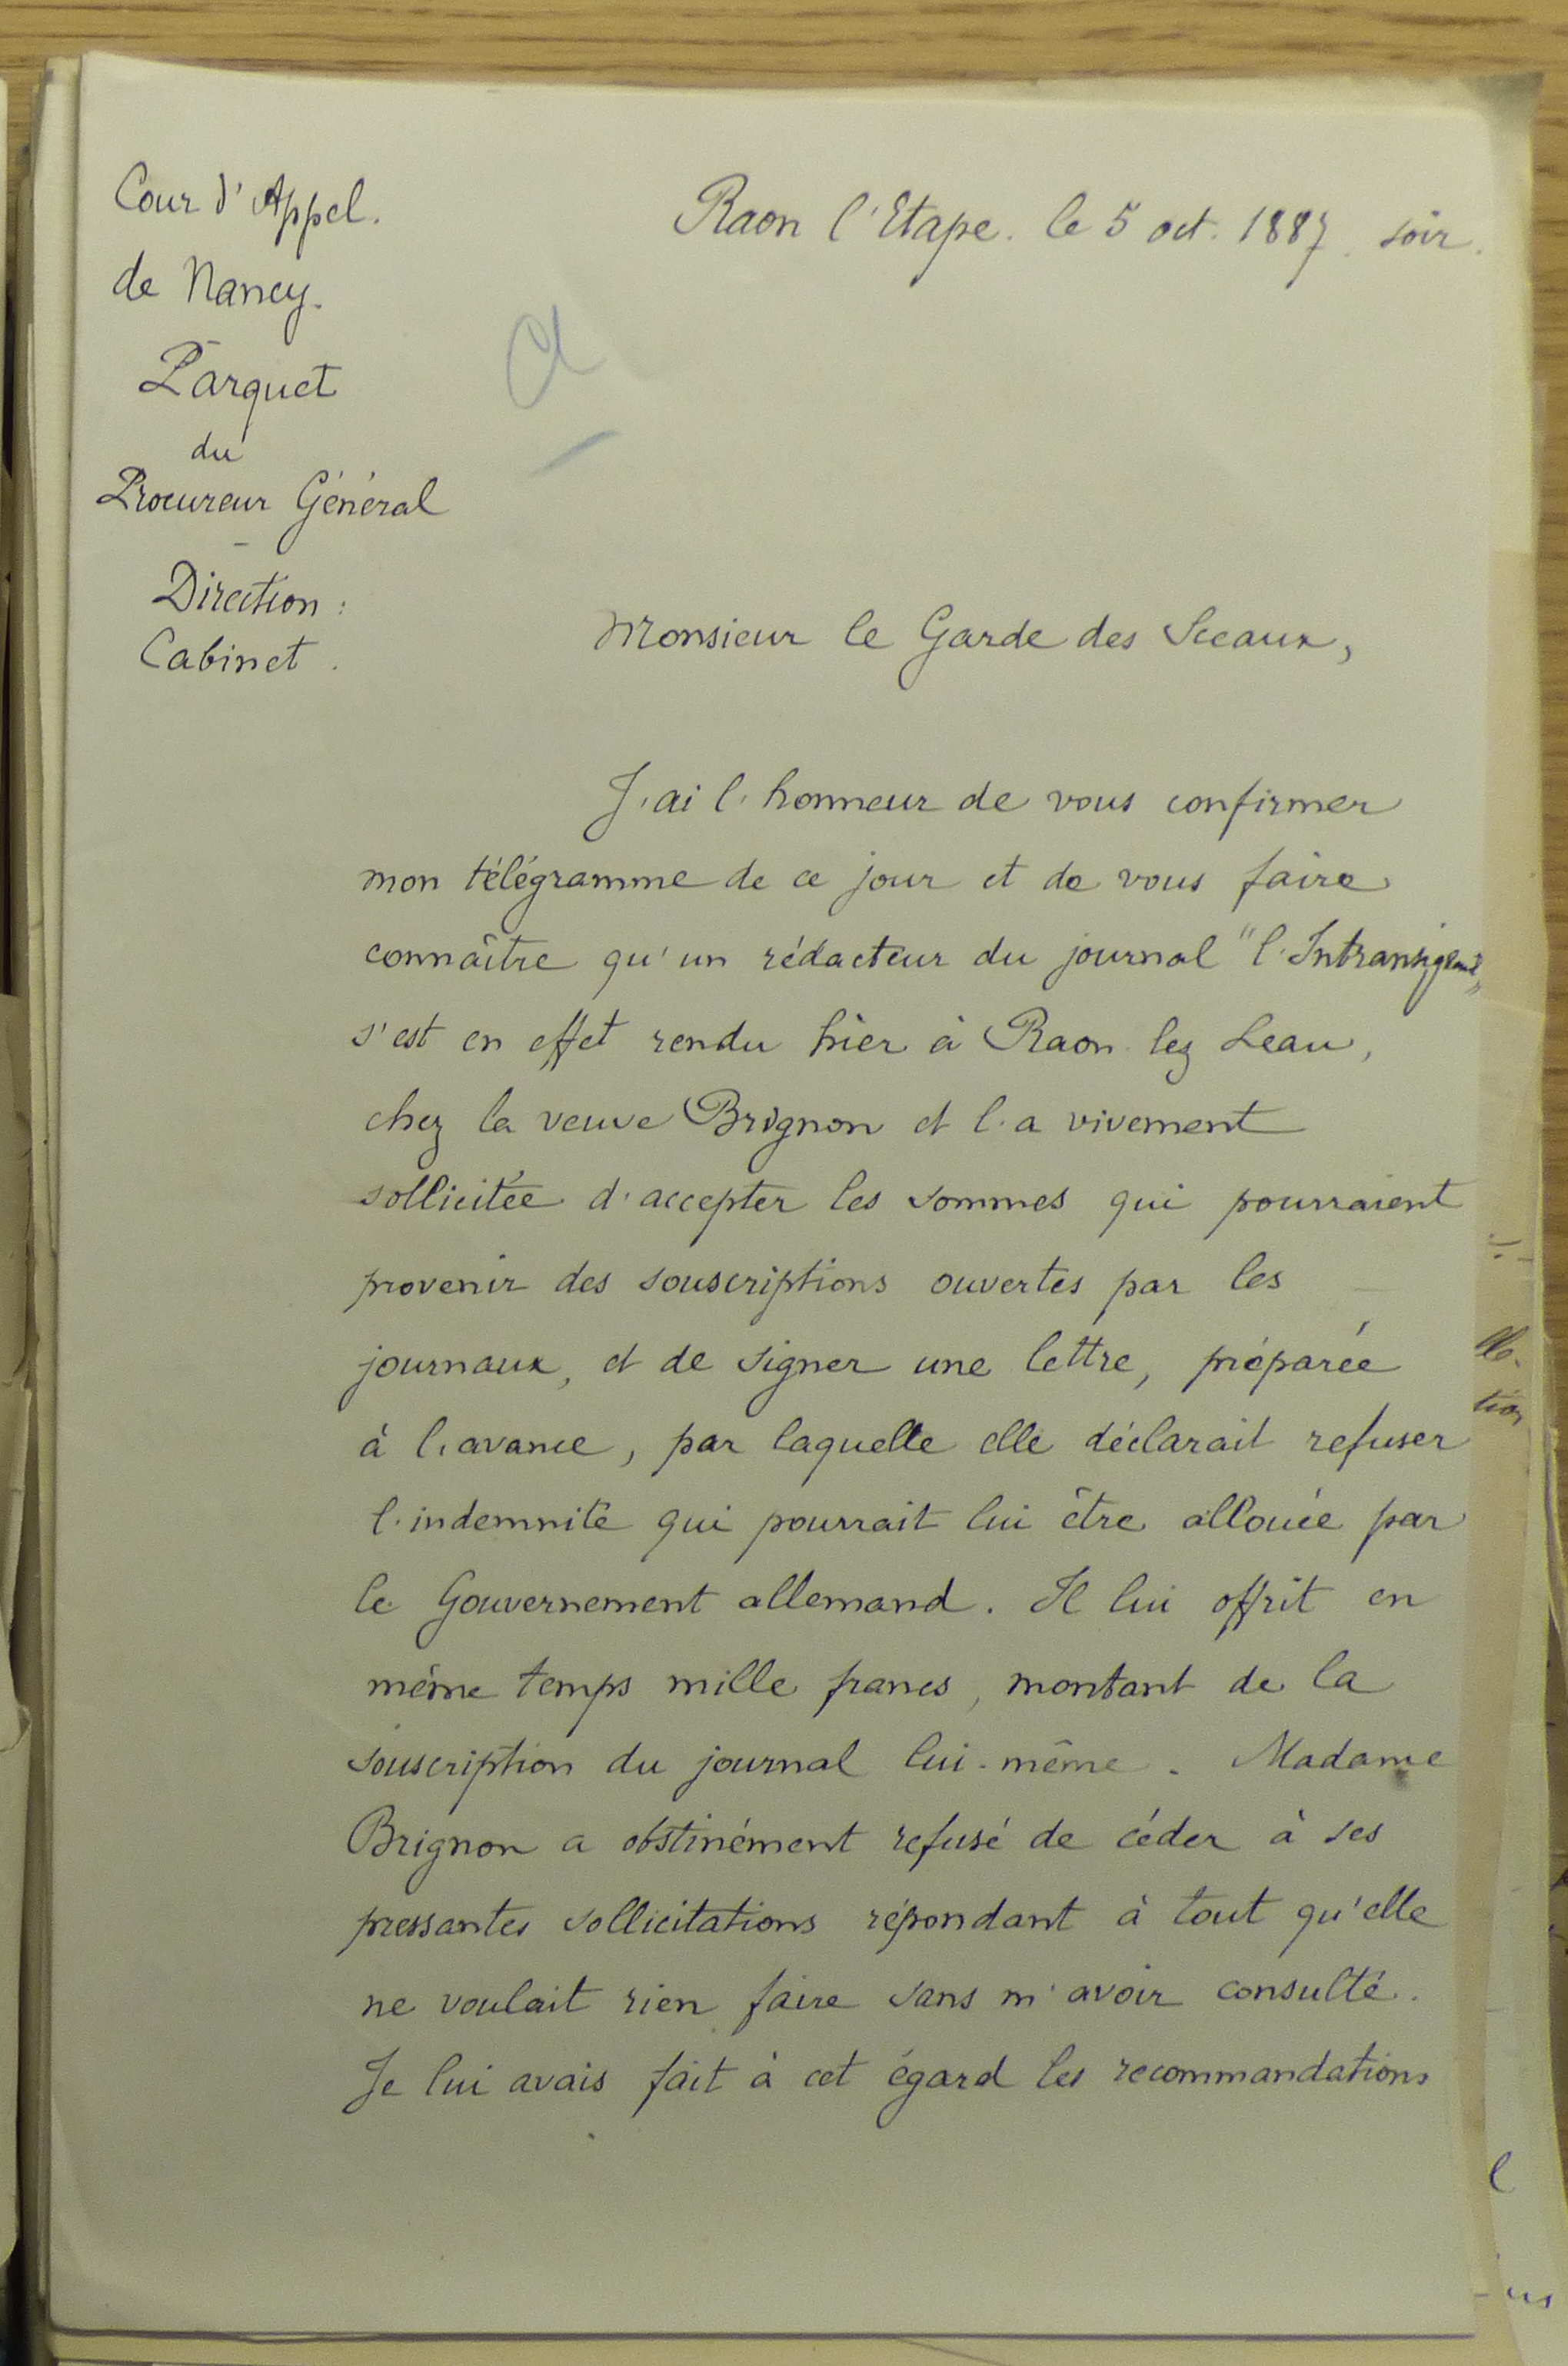 Cour d'Appel.
de Nancy.
Parquet
du
Procureur Général
Direction :
Cabinet.
Raon l'Etape. le 5 oct. 1887. soir.
Monsieur le Garde des Sceaux,
J'ai l'honneur de vous confirmer
mon télégramme de ce jour et de vous faire
connaître qu'un rédacteur du journal "l'Intransigeant"
s'est en effet rendu hier à Raon lez Leau,
chez la veuve Brignon et l'a vivement
sollicitée d'accepter les sommes qui pourraient
provenir des souscriptions ouvertes par les
journaux, et de signer une lettre, préparée
à l'avance, par laquelle elle déclarait refuser
l'indemnité qui pourrait lui être allouée par
le Gouvernement allemand. Il lui offrit en
même temps mille francs, montant de la
souscription du journal lui-même. Madame
Brignon a obstinément refusé de céder à ses
pressantes sollicitations répondant à tout qu'elle
ne voulait rien faire sans m'avoir consulté.
Je lui avais fait à cet égard les recommandations